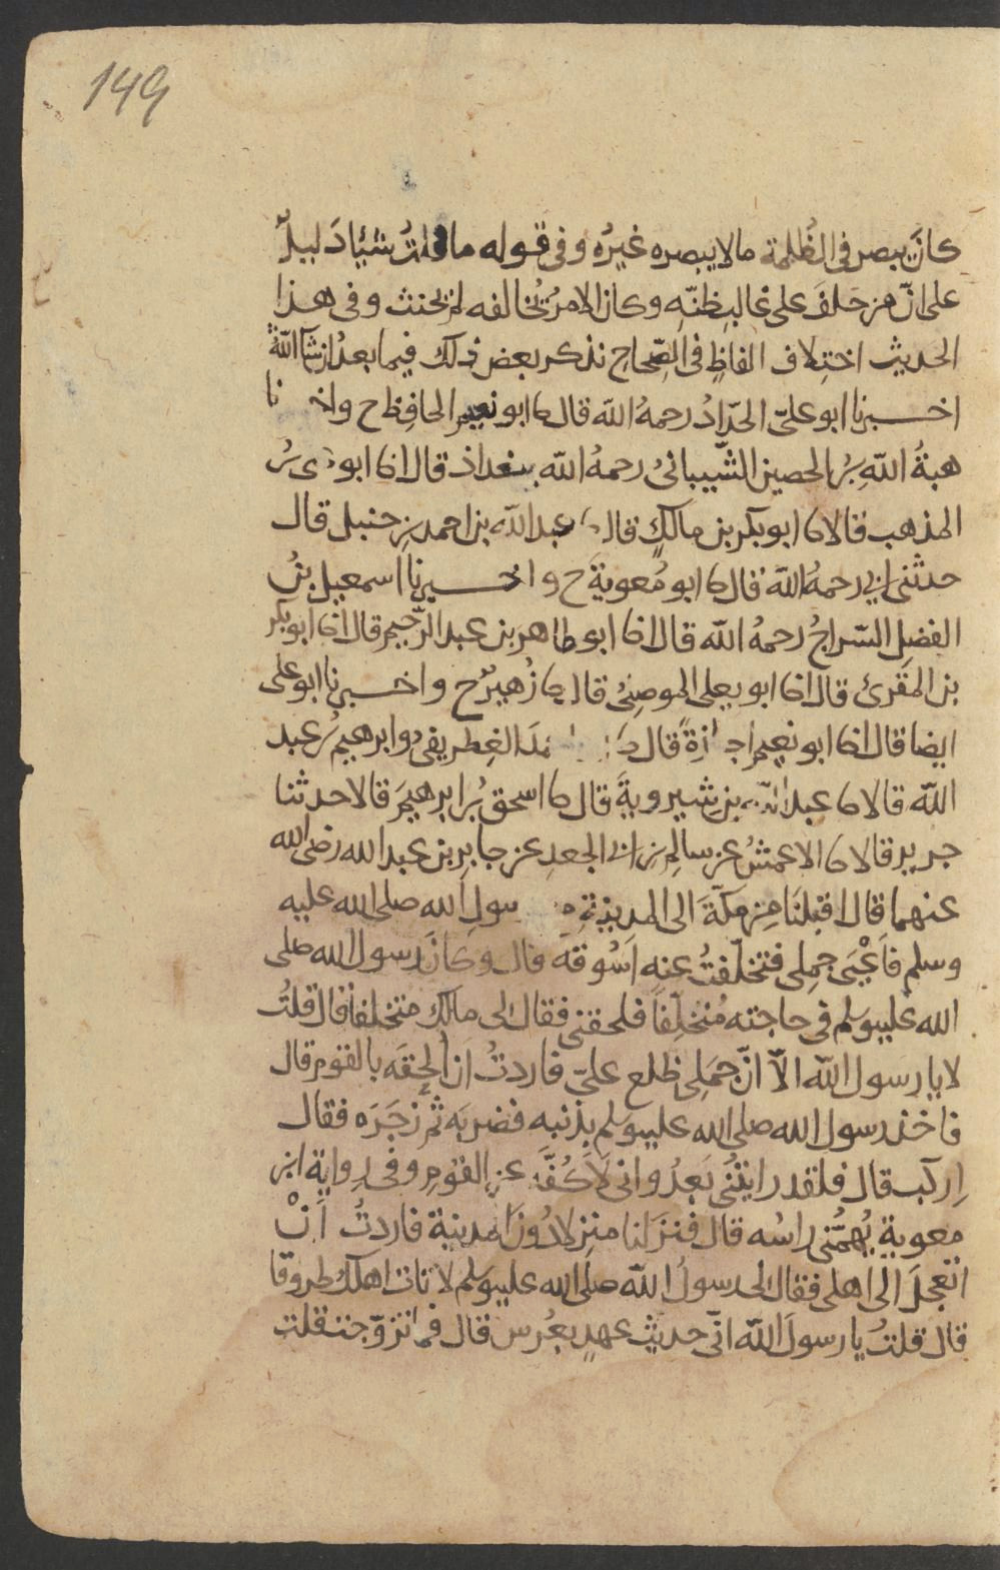 149
كانَ يبصر فى الظُلمة مالا يبصره غيرُه وفى قوله ما قلتُ شيْئا دَليلٌ
على انّ من حَلفَ على غالبِ ظنّهِ وكان الامرُ يُخالفه لم يحنث وفى هذا
الحديث اختِلاف الفاظٍ فى الصِّحاحِ نذكر بعض ذلك فيما بعدُ ان شآ اللهُ
اخـبرنا ابو علىّ الحدّادُ رحمهُ اللّه قال ثنا ابو نعيم الحافِظ ح واخـ نا
هبةُ اللّهِ بنُ الحصين الشّيبانىُ رحمهُ اللّه ببغداذ قال انا ابو على بنُ
المذهب قالا ثنا ابو بكر بن مالكٍ قال ثنا عبد اللّه بن احمد بن حنبل قال
حدثنى ابى رحمهُ اللّه قال ثنا ابو مُعويةَ ح واخـبرنا اسمعيل بنُ
الفضلِ السّراجُ رحمهُ اللّه قال انا ابو طاهر بن عبد الرّحيم قال انا ابو بكر
بن المقرئ قال انا ابو يعلى الموصلىُ قال ثنا زُهيرٌ ح واخـبرنا ابو على
ايضا قال انا ابو نعيم اجازةً قال ثنا الغِطريفىُ وابرهيمُ بنُ عبد
اللّه قالا ثنا عبد اللّه بن شيرويةَ قال ثنا اسحق بنُ ابرهيمَ قالا حدثنا
جرير قالا ثنا الاعمشُ عن سالمِ بن ابى الجعدِ عن جابرِ بن عبد الله رضى الله
عنهما قال اقبلنَا مِن مكّةَ الى المدينةِ مع رسولِ الله صلى الله عليه
وسلم فاَعْيَى جمِلى فتخلّفتُ عنه اَسُوقه قال وكانَ رسول الله صلى
الله عليه وسلم فى حاجته مُتخلِّفاً فلحقنى فقال لى مالك متخلفاً قال قلتُ
لا يا رسول اللّه الاّ انّ جمَلِى ظلع علىّ فاردتُ ان اُلحِقَه بالقومِ قال
فاخذ رسول الله صلى الله عليه وسلم بذنبه فضربَه ثم زجَرَه فقال
اِركب قال فلقد رايتنُى بَعدُ وانى لاَكُفّه عن القومِ وفى رِواية ابى
معوية يُهمُّنى راسُه قال فنزَلنا منزلا دُونَ المدينة فاردتُ اَنْ
اتعجلَ الى اهلى فقال لى رسولُ اللّه صلى الله عليه وسلم لا تاتِ اهلك طروقا
قال قلتُ يا رسولَ اللّه انّى حديث عهدٍ بعُرسٍ قال فم تزوّجت قلت